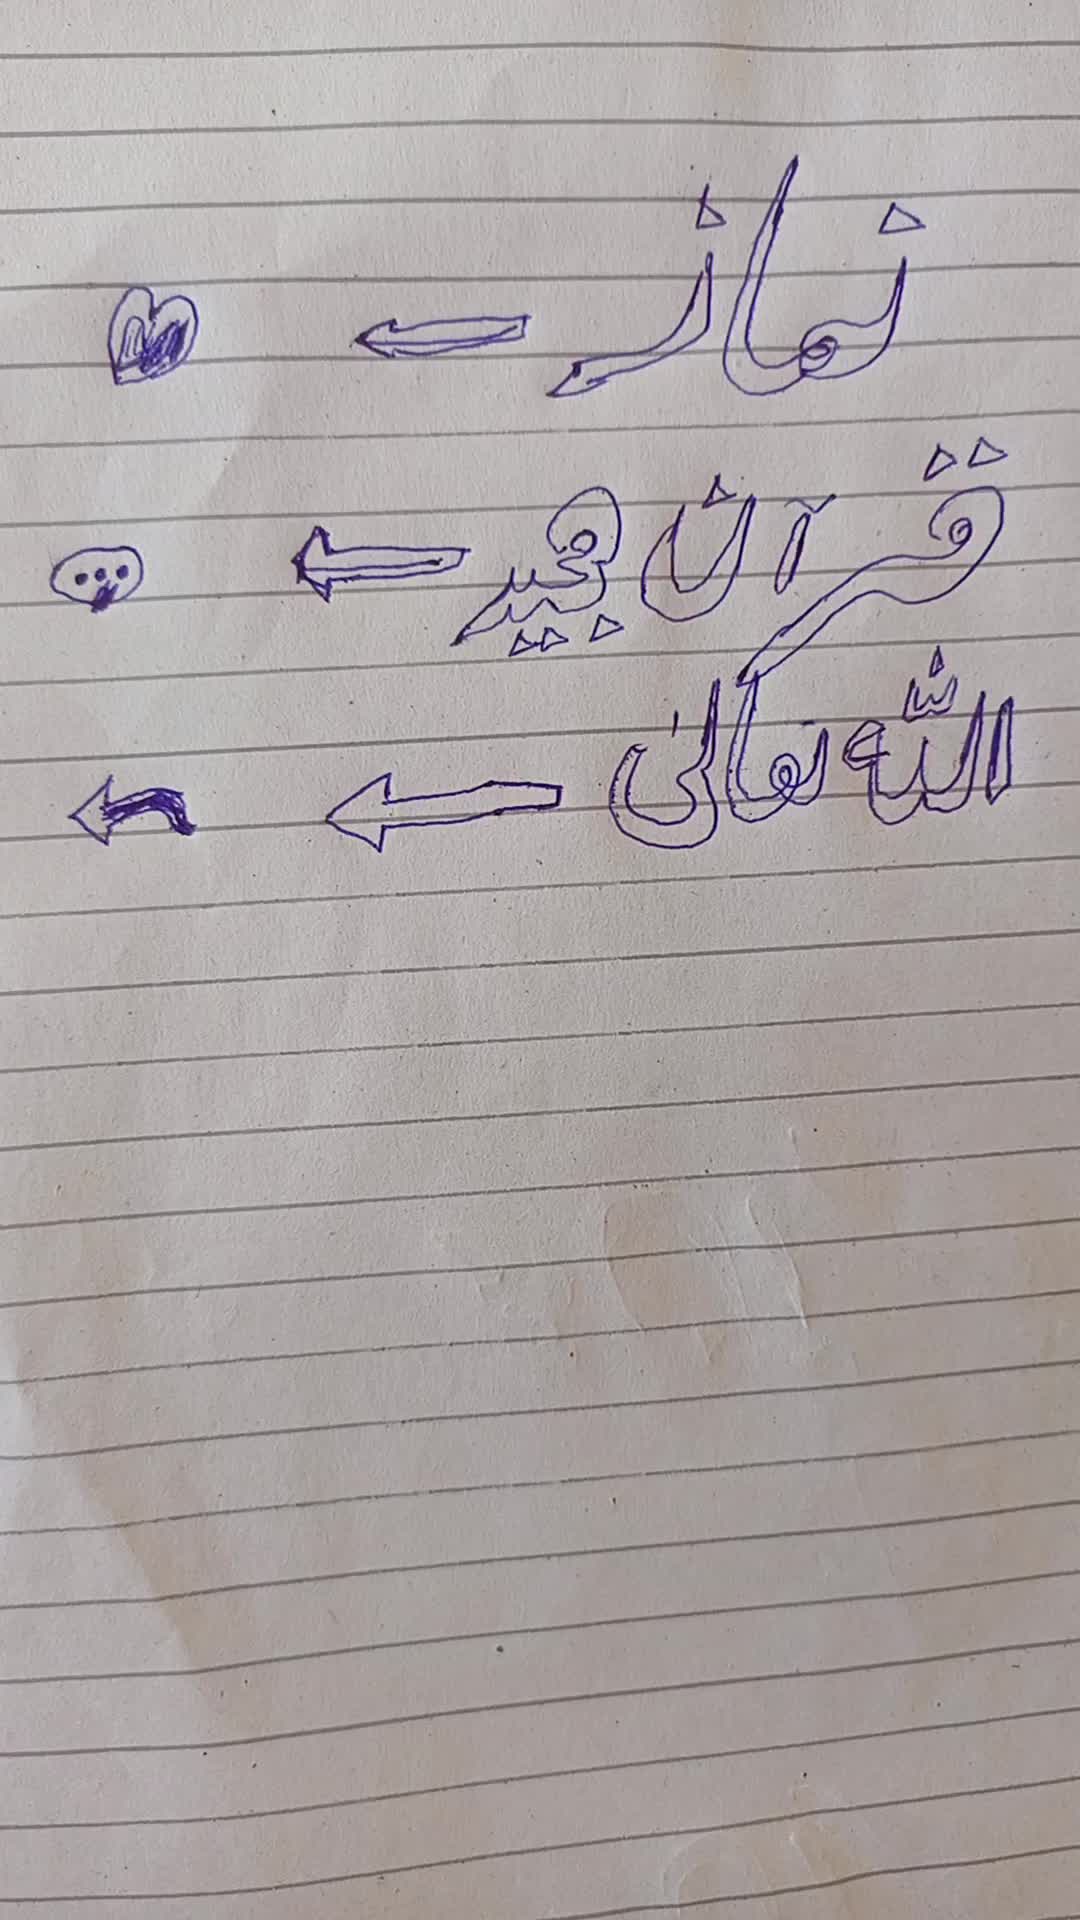 نماز
قرآن مجید
اللہ تعالیٰ